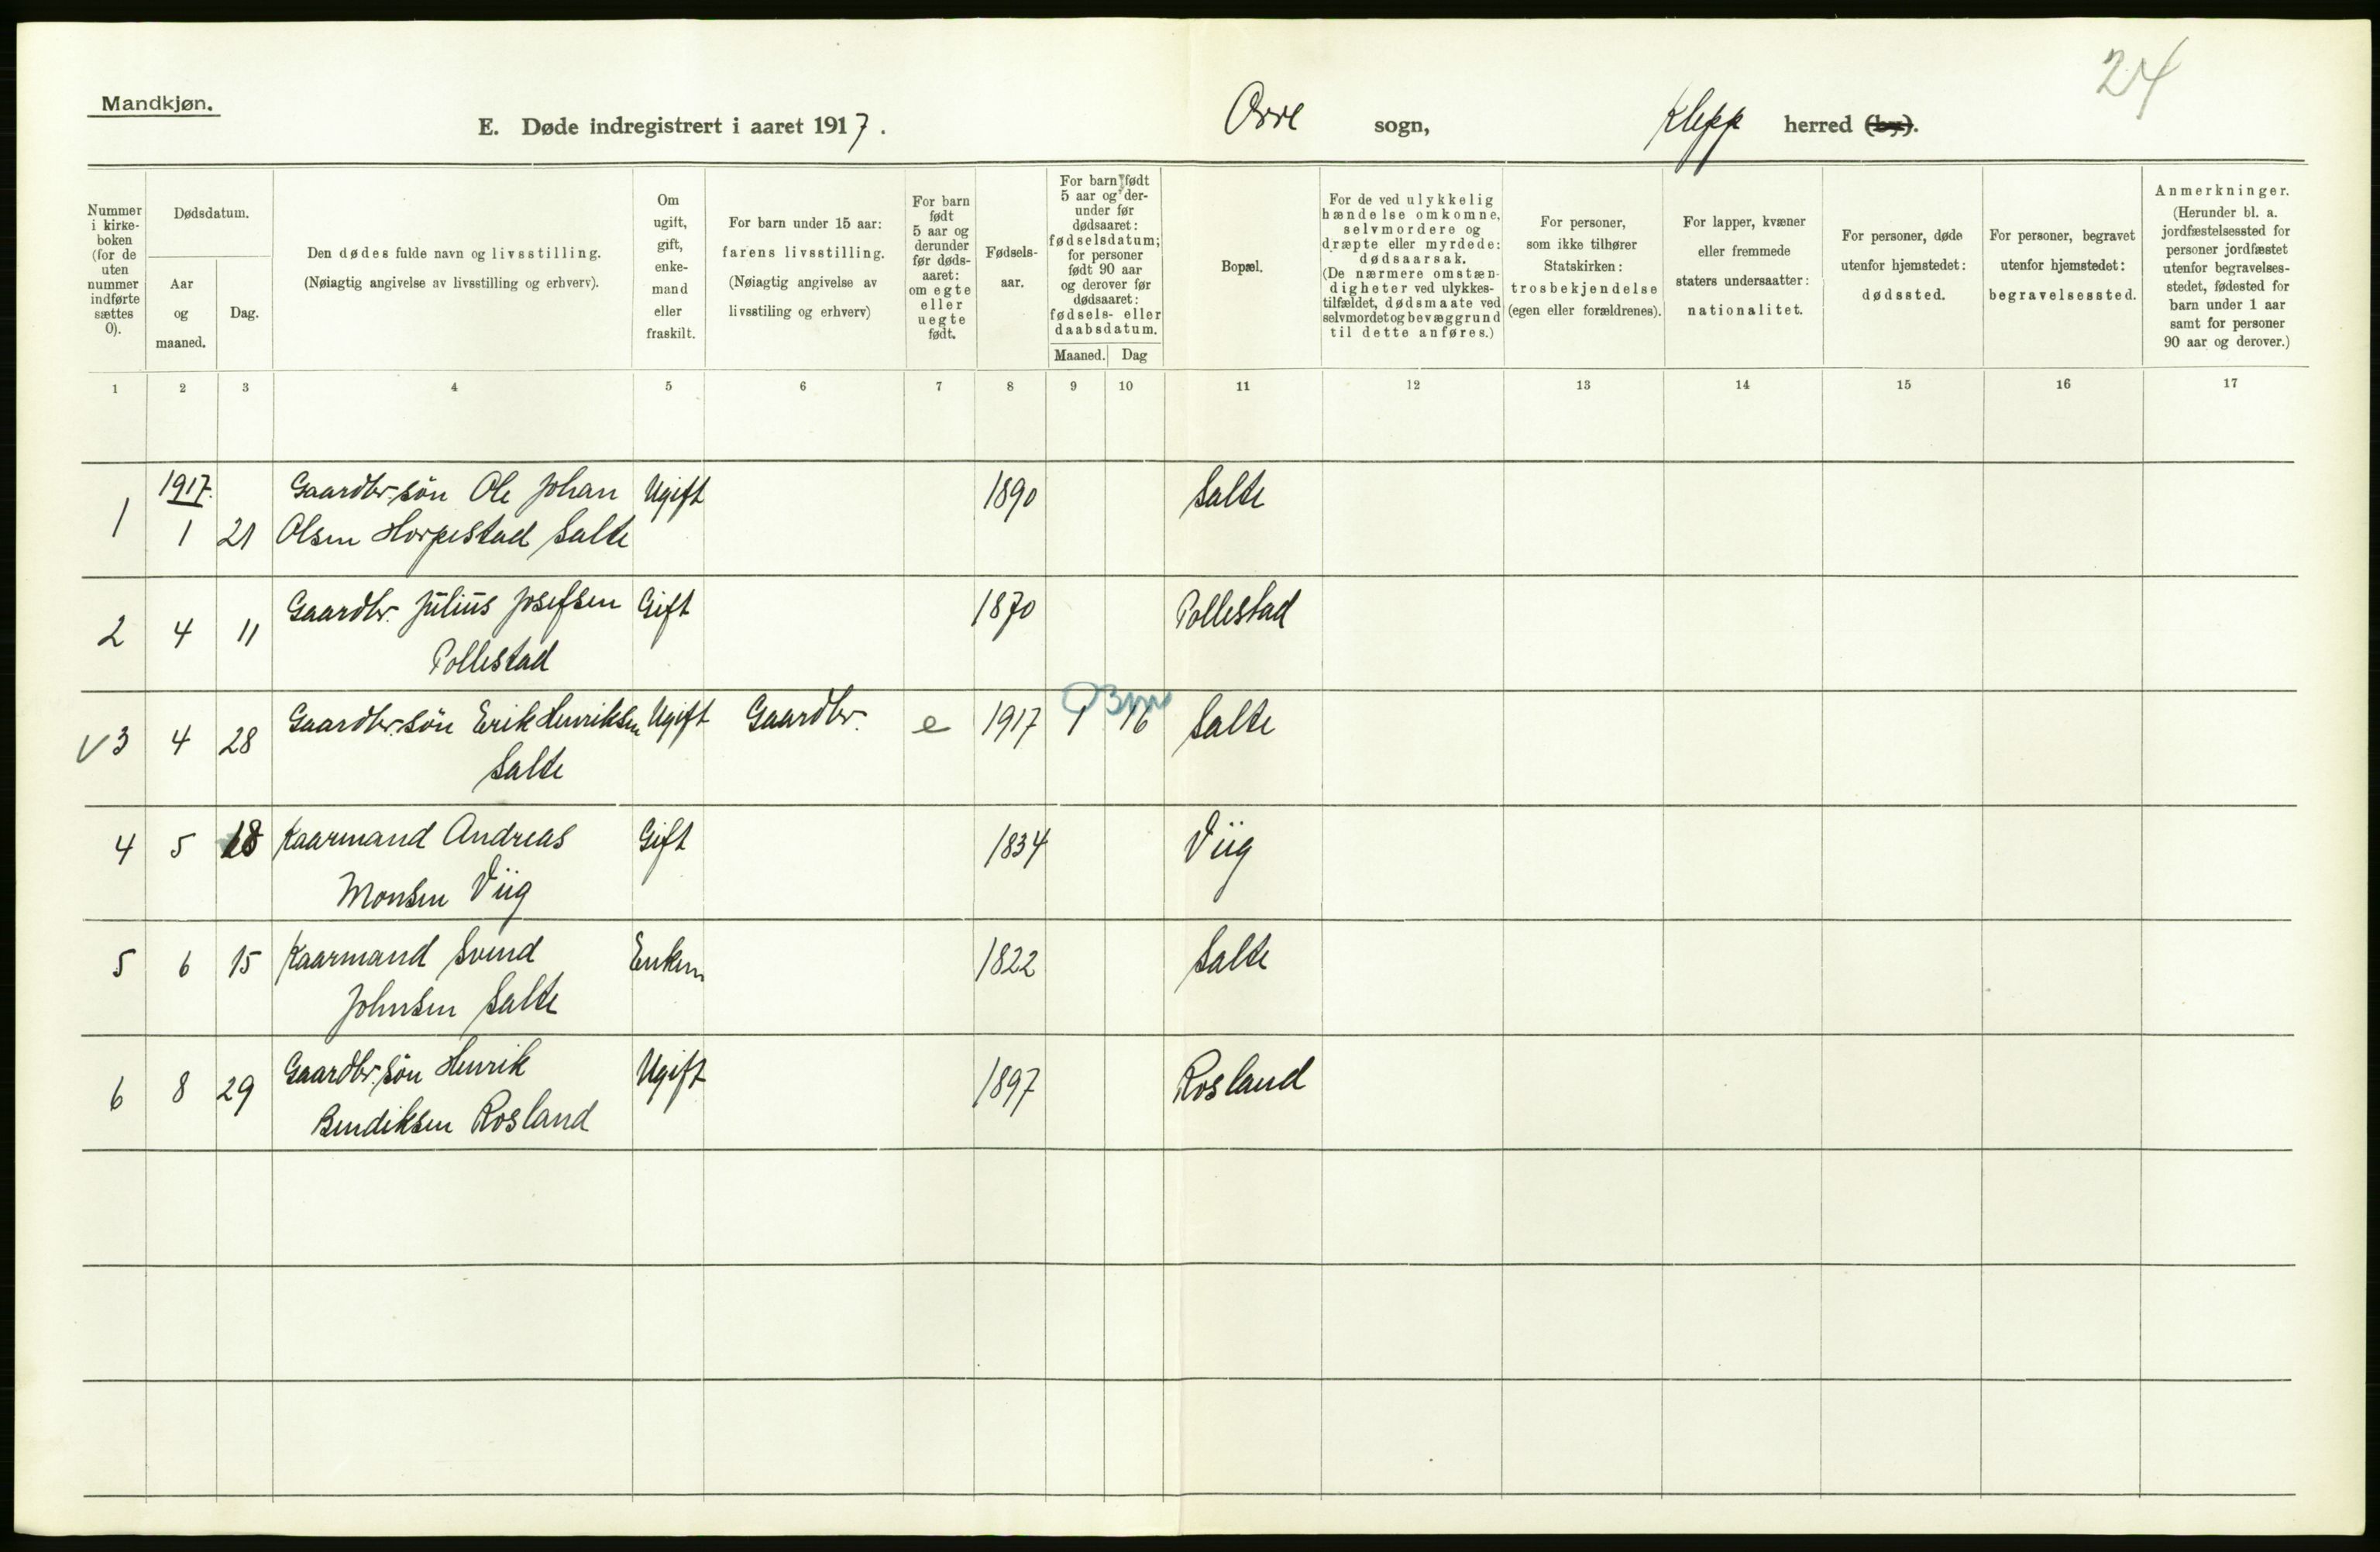 24
Mandkjøn.
E. Døde indregistrert i aaret 1917.
Orre sogn,
Klepp herred (by).
Nummer i kirkeboken (for de uten nummer indførte sættes 0).
Dødsdatum.
Aar og maaned.
Dag.
Den dødes fulde navn og livsstilling.
(Nøiagtig angivelse av livsstilling og erhverv).
Om ugift, gift, enkemand eller fraskilt.
For barn under 15 aar: farens livsstilling.
(Nøiagtig angivelse av livsstiling og erhverv)
For barn født 5 aar og derunder før dødsaaret: om egte eller uegte født.
Fødselsaar.
For barn født 5 aar og derunder før dødsaaret: fødselsdatum; for personer født 90 aar og derover før dødsaaret: fødsels- eller daabsdatum.
Maaned.
Dag
Bopæl.
For de ved ulykkelig hændelse omkomne, selvmordere og dræpte eller myrdede: dødsaarsak.
(De nærmere omstændigheter ved ulykkestilfældet, dødsmaate ved selvmordet og bevæggrund til dette anføres.)
For personer, som ikke tilhører Statskirken: trosbekjendelse (egen eller forældrenes).
For lapper, kvæner eller fremmede staters undersaatter: nationalitet.
For personer, døde utenfor hjemstedet: dødssted.
For personer, begravet utenfor hjemstedet: begravelsessted.
Anmerkninger.
(Herunder bl. a. jordfæstelsessted for personer jordfæstet utenfor begravelsesstedet, fødested for barn under 1 aar samt for personer 90 aar og derover.)
1 2 3 4 5 6 7 8 9 10 11 12 13 14 15 16 17
1917.
Gaardbr. søn Ole Johan Ugift 1890 Salte
1 1 21 Olsen Horpestad Salte
Gaardbr. Julius Josefsen Gift 1870 Pollestad
2 4 11 Pollestad
V3 4 28 Gaardbr. søn Erik Henriksen Ugift Gaardbr. e 1917 1 16 Salte
Salte
4 5 18 Kaarmand Andreas Gift 1834 Viig
Monsen Viig
5 6 15 Kaarmand Svend Enkem 1822 Salte
Johnsen Salte
6 8 29 Gaardbr. søn Henrik Ugift 1897 Rosland
Bendiksen Rosland